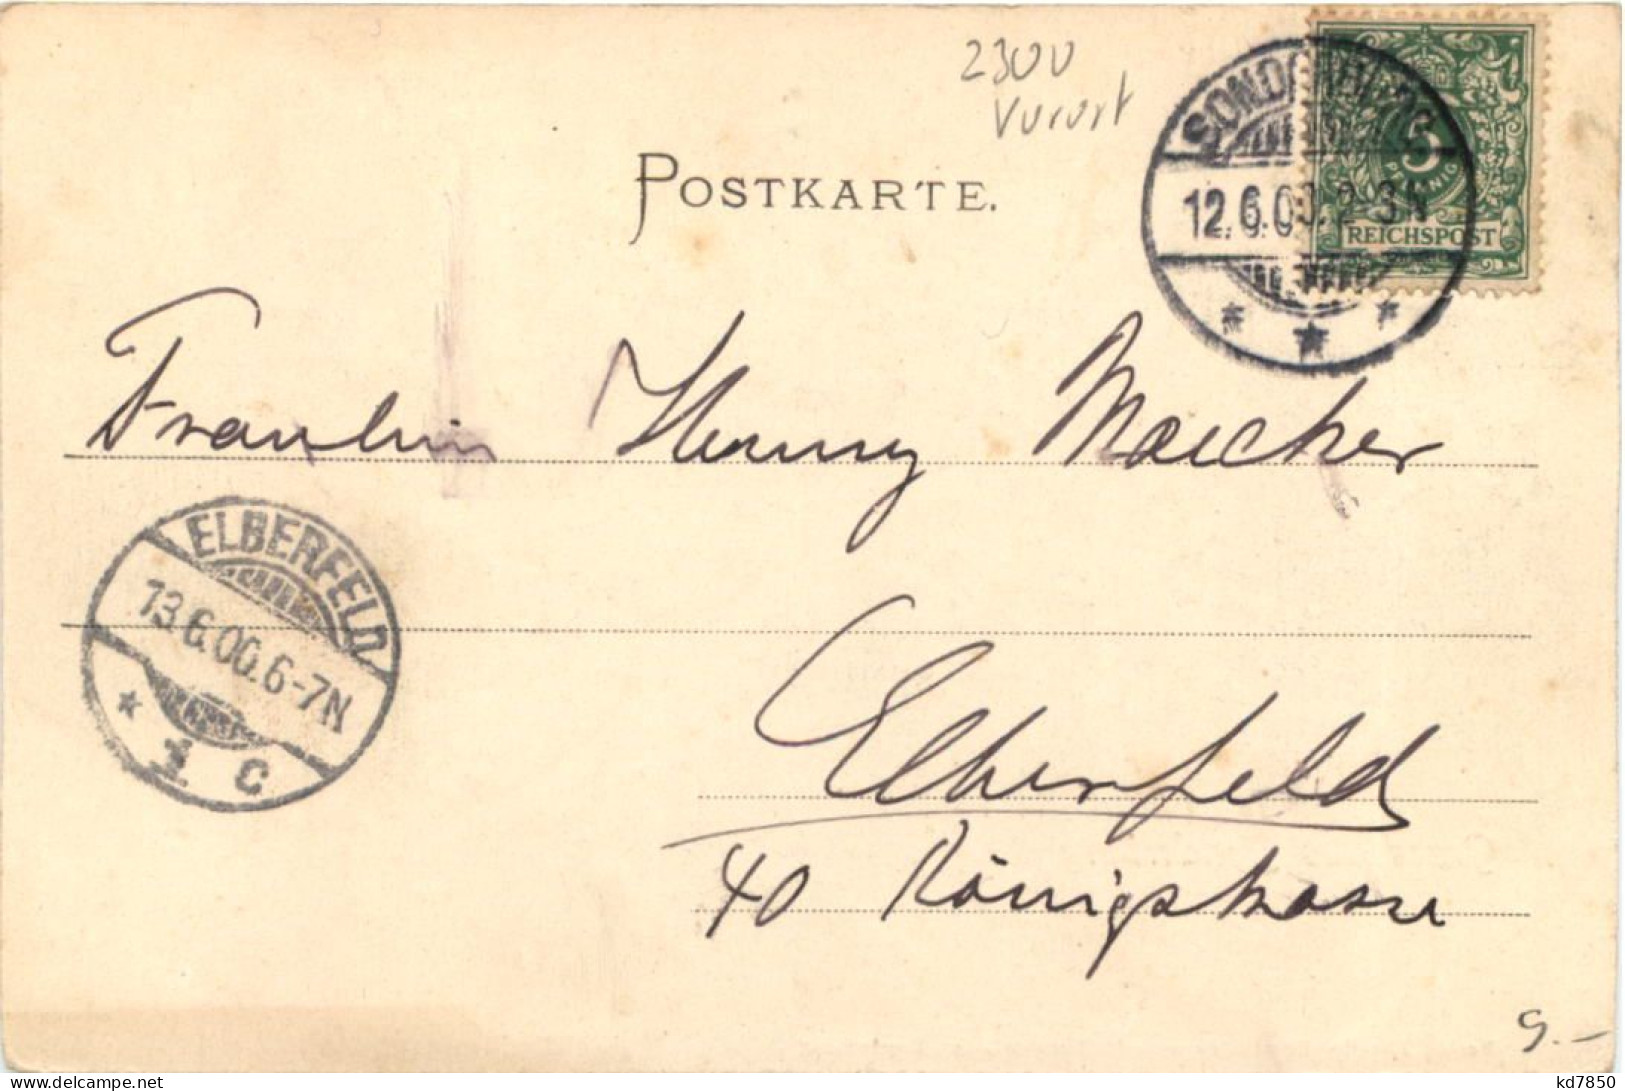 2300
Vorort
POSTKARTE.
5
PFENNIG
REICHSPOST
12.6.00. 2-3N
Fraulein Henny Maecher
ELBERFELD
13.6.00. 6-7N
1 C
Elberfeld
40 Königstrasse
9.-
delcampe.net
kd7850